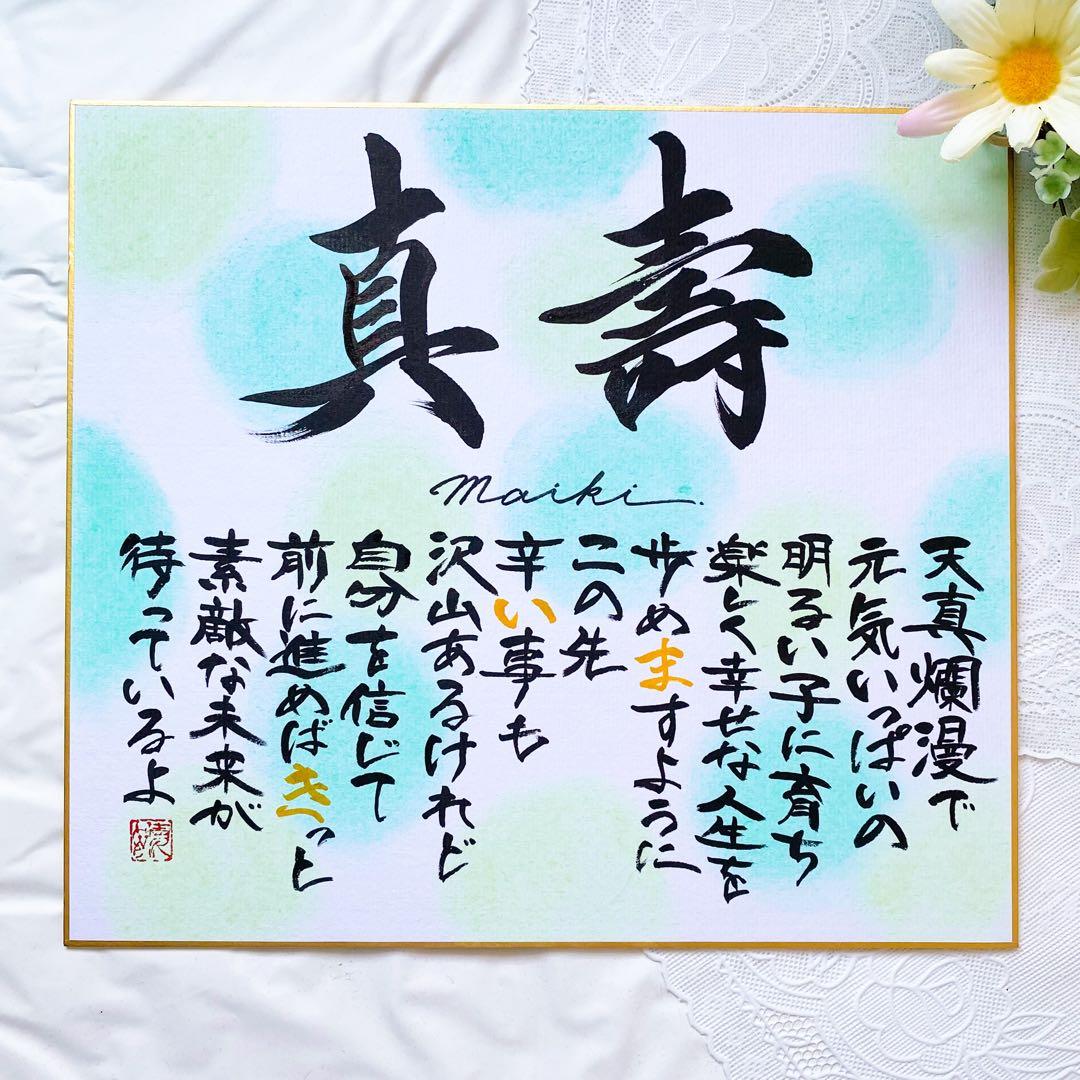 真壽
maiki
天真爛漫で
元気いっぱいの
明るい子に育ち
楽しく幸せな人生を
歩めますように
この先
辛い事も
沢山あるけれど
自分を信じて
前に進めばきっと
素敵な未来が
待っているよ